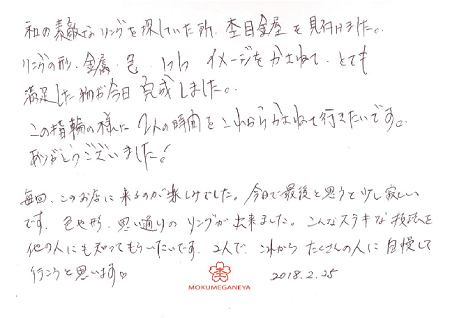 和の素敵なリングを探していた所、杢目金屋を見付けました。
リングの形、金属、色、1つ1つ イメージをかさねて、とても
満足した物が今日完成しました。
この指輪の様に2人の時間をこれからかさねて行きたいです。
ありがとうございました!
毎回、このお店に来るのが楽しみでした。今日で最後と思うと少し寂しい
です。色や形、思い通りのリングが出来ました。こんなステキな技法を
他の人にも知ってもらいたいです。2人で、これから たくさんの人に自慢して
行こうと思います♡
MOKUMEGANEYA
2018.2.25